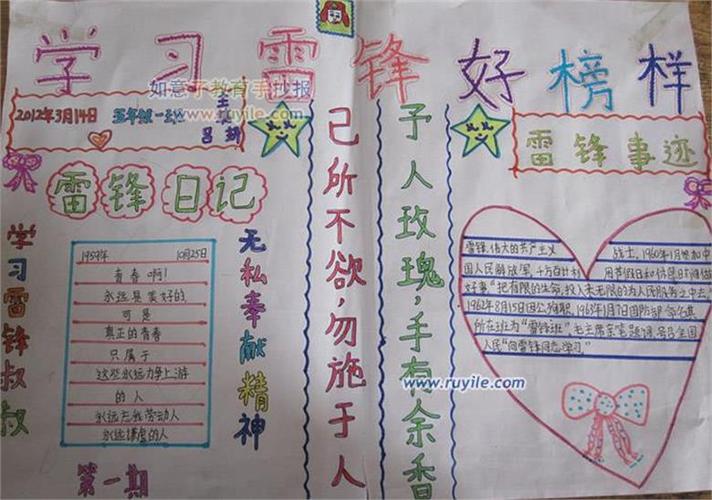 学习雷锋好榜样
如意了教育手抄报
www.ruyile.com
2012年3月14日 五年级一班
雷锋日记
学习雷锋叔叔
1959年 10月25日
青春啊!
永远是美好的,
可是
真正的青春
只属于
这些永远力争上游
的人
永远忘我劳动人
永远谦虚的人
无私奉献精神
第一期
己所不欲,勿施于人
予人玫瑰,手有余香
雷锋事迹
雷锋,伟大的共产主义 战士,1960年1月参加中
国人民解放军,千方百计利 用节假日和休息日
好事"把有限的生命,投入未无限的为人民服务之中去."
1962年8月15日因公殉职,1963年1月7日国防部命名其
所在班为"雷锋班",毛主席亲笔题词,号召全国
人民"向雷锋同志学习."
www.ruyile.com